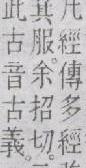 凡經傳多經
其服余招切
此古音古義